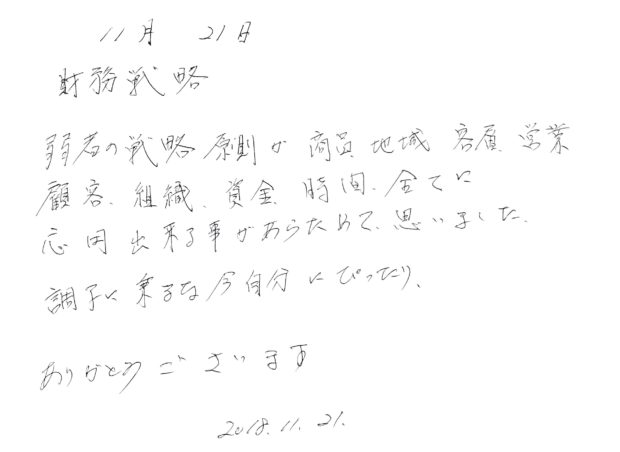 11月 21日
財務戦略
弱者の戦略原則が商品 地域 客層 営業
顧客、組織、資金、時間、全てに
応用出来る事があらためて、思いました。
調子に乗るな 今自分にぴったり、
ありがとうございます
2018.11.21.